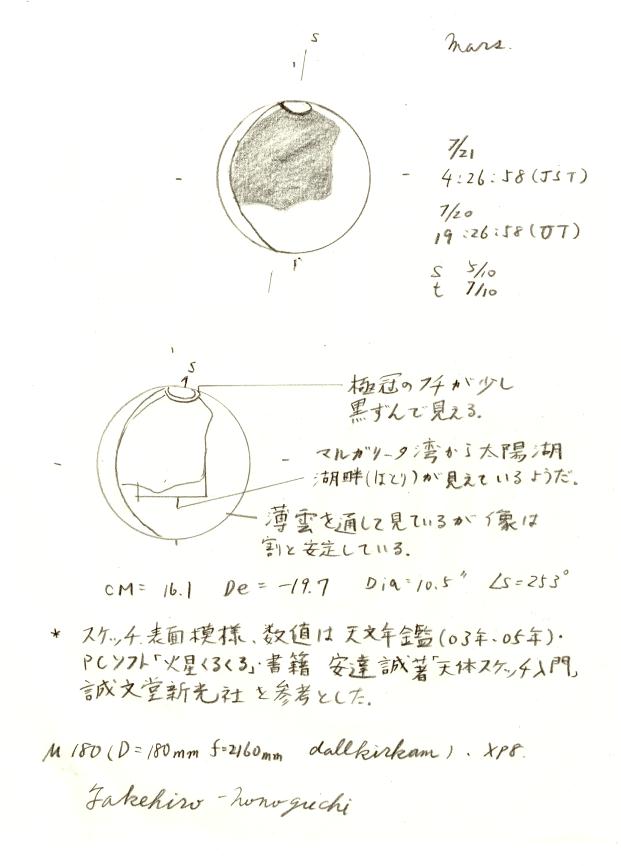 S
Mars.
7/21
4:26:58 (JST)
7/20
19:26:58 (UT)
S 5/10
t 7/10
S
極冠のフチが少し
黒ずんで見える。
マルガリータ湾から太陽湖
湖畔(ほとり)が見えているようだ。
薄雲を通して見ているが像は
割と安定している。
CM= 16.1 De= -19.7 Dia=10.5" Ls=253°
* スケッチ、表面模様、数値は天文年鑑(03年、05年)・
PCソフト「火星くるくる」・書籍 安達誠著「天体スケッチ入門」
誠文堂新光社を参考とした。
M180 (D=180mm f=2160mm dallkirkam)、XP8.
Takehiro Nonoguchi